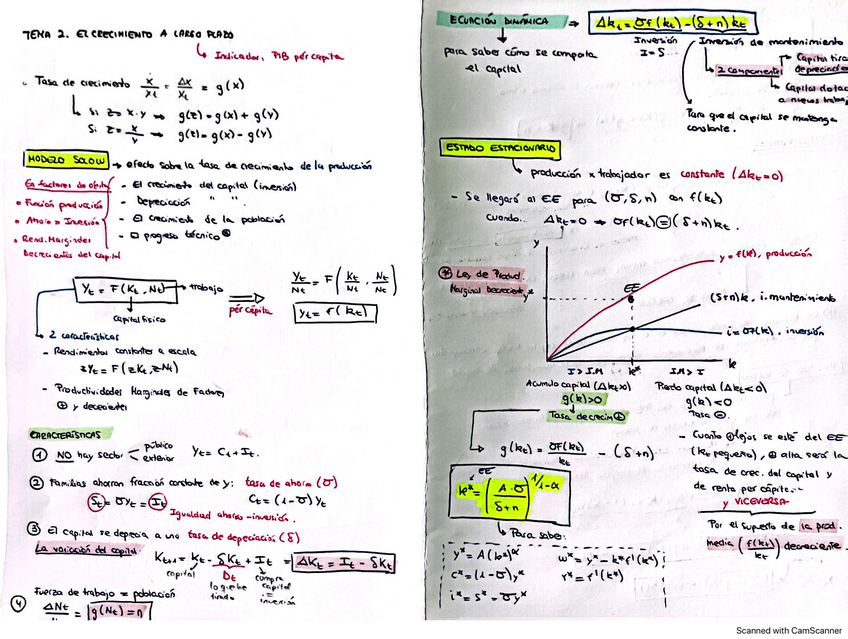 TEMA 2. EL CRECIMIENTO A LARGO PLAZO
↳ Indicador, PIB per cápita
. Tasa de crecimiento ẋ/xt = Δx/xt = g(x)
↳ Si z = x·y ⇒ g(z) = g(x) + g(y)
Si z = x/y ⇒ g(z) = g(x) - g(y)
MODELO SOLOW → efecto sobre la tasa de crecimiento de la producción
En factores de oferta
• Función producción
• Ahorro = Inversión
• Rend. Marginales
Decrecientes del capital
- El crecimiento del capital (inversión)
- Depreciación " " .
- El crecimiento de la población
- El progreso técnico
Yt = F(Kt, Nt) → trabajo
capital físico
⇒ per cápita
Yt/Nt = F(Kt/Nt, Nt/Nt)
yt = f(kt)
2 características
- Rendimientos constantes a escala
zYt = F(zKt, zNt)
- Productividades Marginales de Factores
⊕ y dececientes
CARACTERÍSTICAS
① NO hay sector público
exterior
Yt = Ct + It.
② Familias ahorran fracción constante de y: tasa de ahorro (σ)
St = σYt = It Ct = (1-σ)Yt
Igualdad ahorro-inversión.
③ El capital se deprecia a una tasa de depreciación (δ)
La variación del capital
Kt+1 = Kt - δKt + It = ΔKt = It - δKt
capital
Dt
lo que he
tirado
compra
capital
i =
inversión
④ Fuerza de trabajo = población
ΔNt
g(Nt) = n
ECUACIÓN DINÁMICA ⇒ Δkt = σf(kt) - (δ+n)kt
para saber cómo se comporta
el capital
Inversión
I = S
Inversión de mantenimiento
2 componentes
Capital tira
depreciació
Capital dota
a nuevos trabaj
Para que el capital se mantenga
constante.
ESTADO ESTACIONARIO
↳ producción x trabajador es constante (Δkt = 0)
- Se llegará al EE para (σ, δ, n) con f(kt)
cuando.. Δkt = 0 ⇒ σf(kt) = (δ+n)kt.
Ley de Product.
Marginal Decreciente
y
y*
EE
y = f(k), producción
(δ+n)k, i. mantenimiento
i = σf(k), inversión
I > I.M k* I.M > I k
Acumulo capital (Δkt>0)
g(k) > 0
Tasa decrecim ⊕
Pierdo capital (Δkt<0)
g(k) < 0
Tasa ⊖.
g(kt) = σf(kt)/kt - (δ+n)
EE
k* = (A·σ/δ+n)^1/1-α
↳ Para saber:
y* = A(k*)^α
c* = (1-σ)y*
i* = s* = σy*
w* = y* - k*f'(k*)
r* = f'(k*)
- Cuanto ⊕ lejos se esté del EE
(kt pequeño), ⊕ alta será la
tasa de crec. del capital y
de renta per cápita.
y VICEVERSA
Por el supuesto de la prod.
media (f(kt)/kt) decreciente.
Scanned with CamScanner